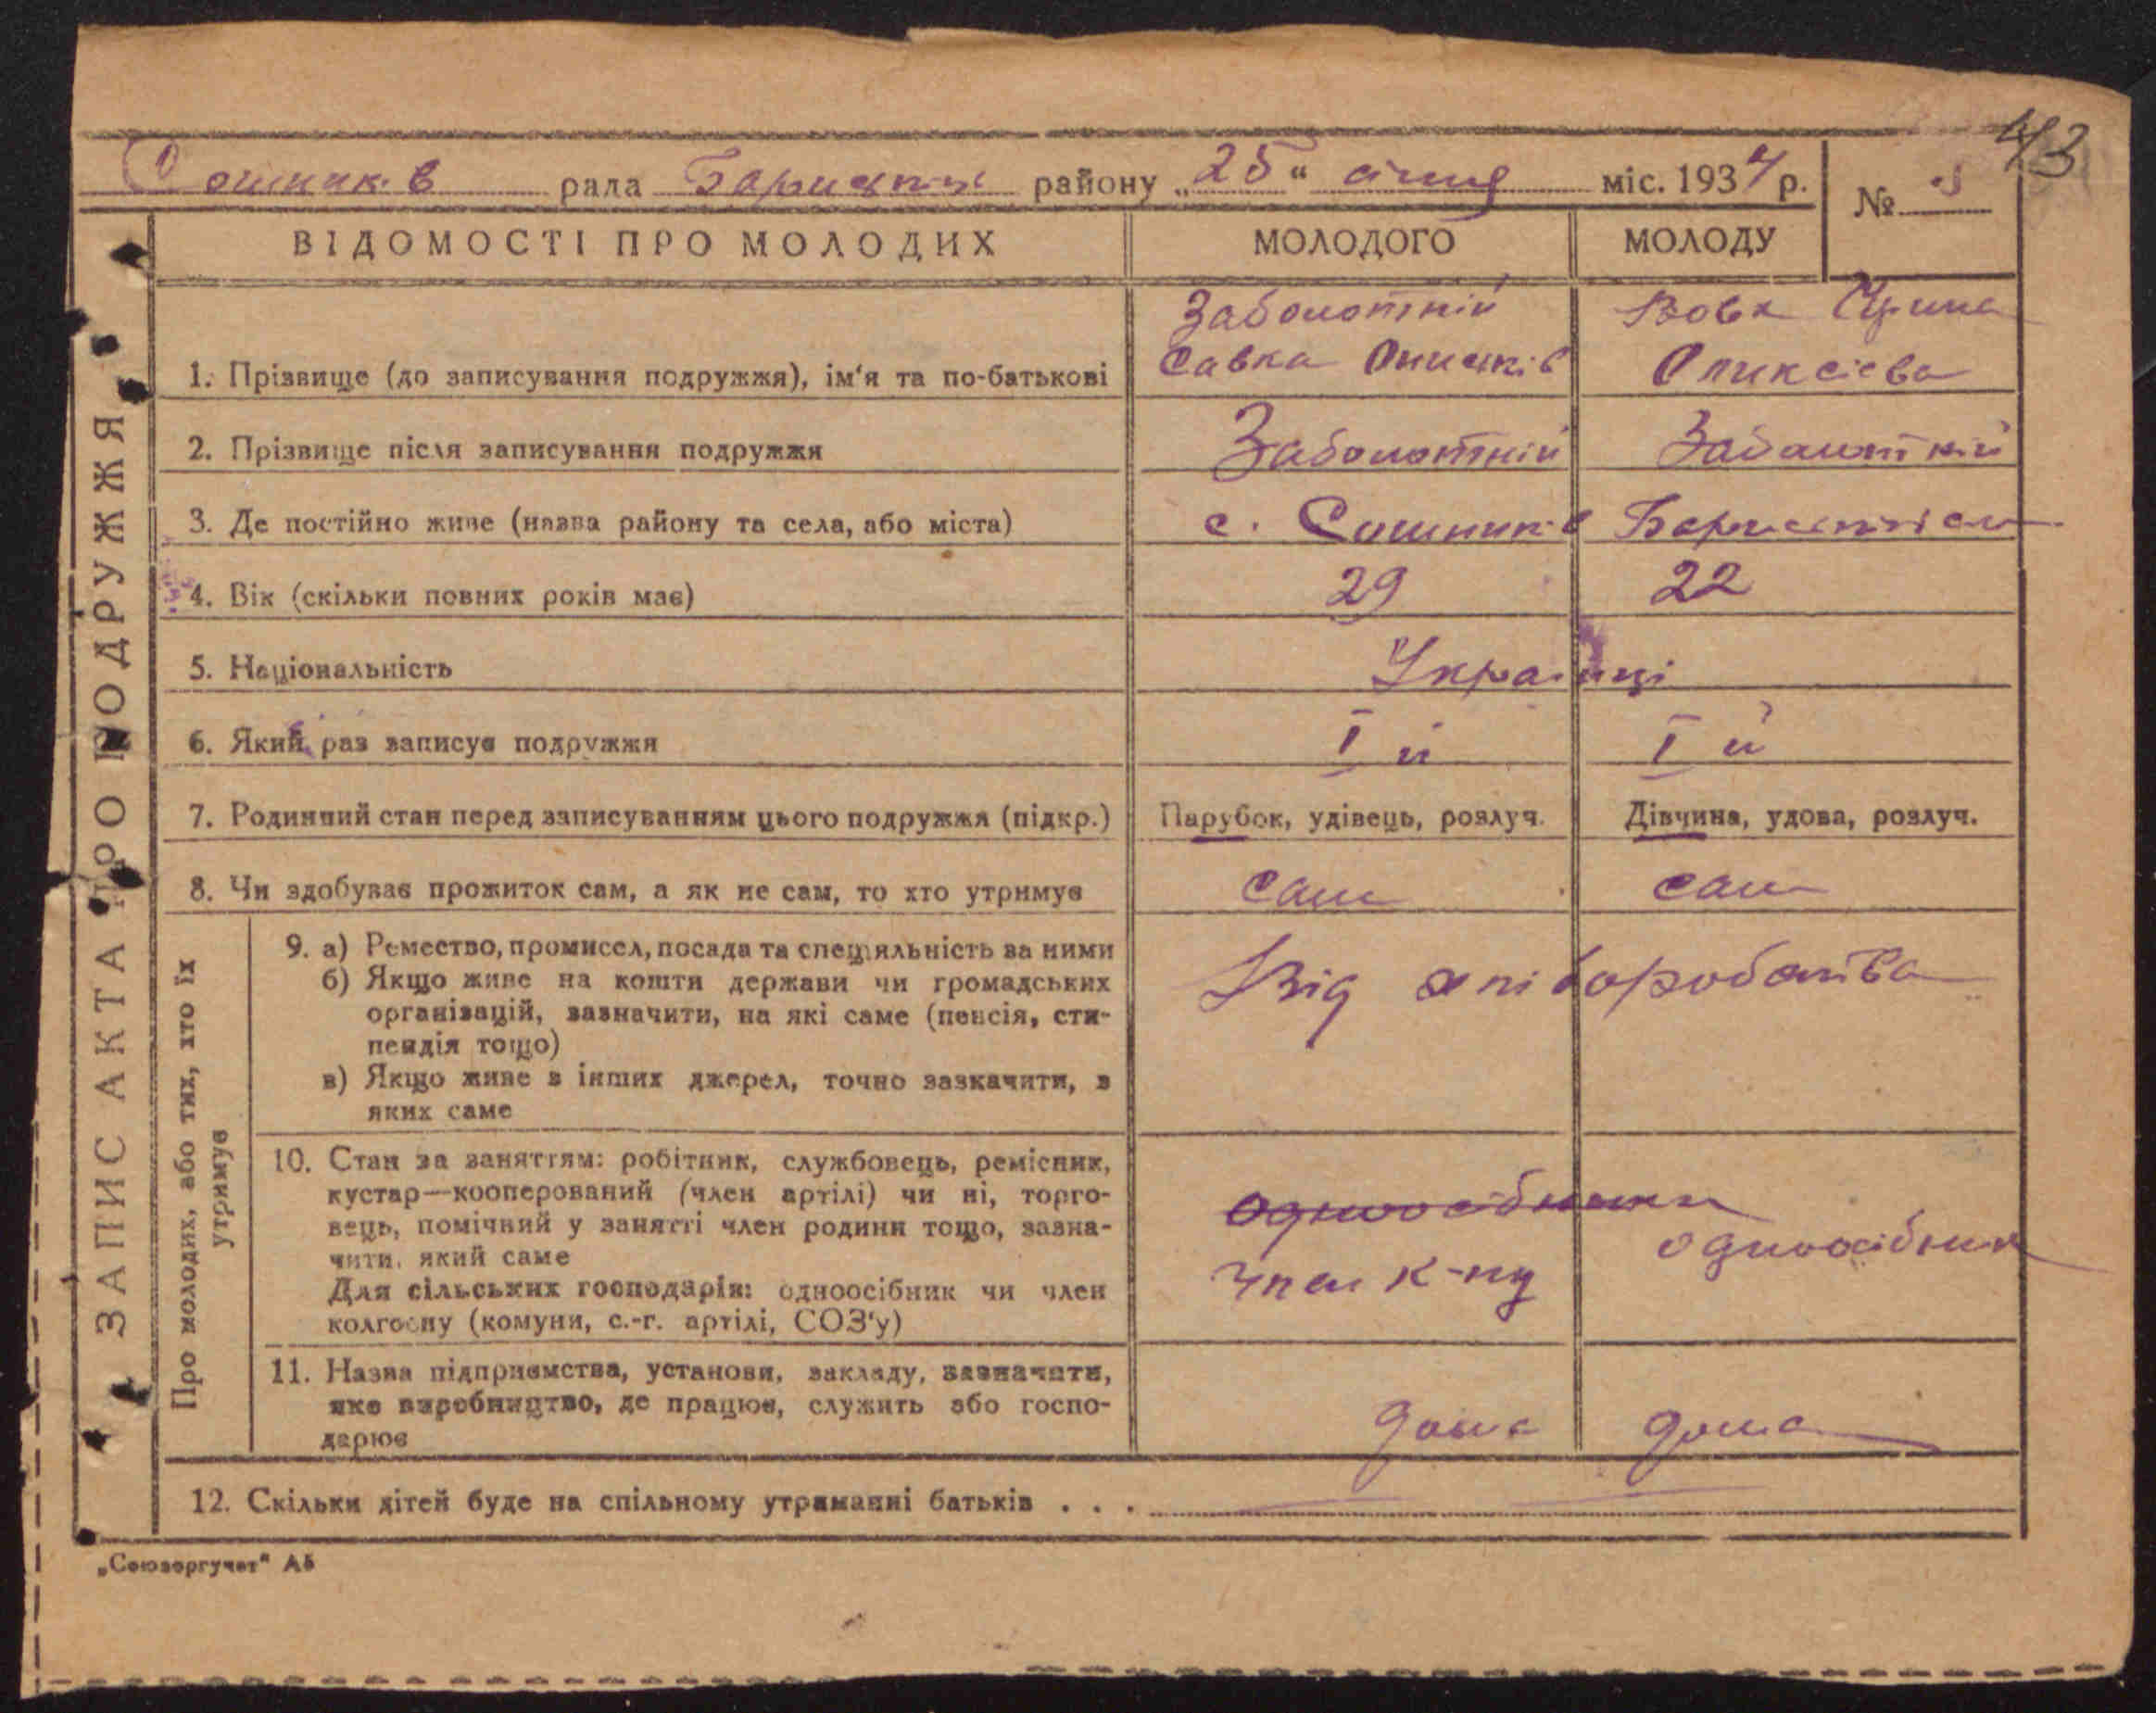 43
Сошників рада Бориспіль району „25“ січня міс. 1934 р.
№
ЗАПИС АКТА ПРО ПОДРУЖЖЯ
ВІДОМОСТІ ПРО МОЛОДИХ МОЛОДОГО МОЛОДУ
1. Прізвище (до записування подружжя), ім'я та по-батькові
Заболотній
Савка Онисків
Вовк Ірина
Оликсієва
2. Прізвище після записування подружжя Заболотній Заболотній
3. Де постійно живе (назва району та села, або міста) с. Сошників
4. Вік (скільки повних років має) 29 22
5. Національність Українці
6. Який раз записує подружжя I й I й
7. Родинний стан перед записуванням цього подружжя (підкр.) Парубок, удівець, розлуч. Дівчина, удова, розлуч.
8. Чи здобуває прожиток сам, а як не сам, то хто утримує сам сам
Про молодих, або тих, хто їх
утримує
9. а) Ремество, промисел, посада та спеціяльність за ними
б) Якщо живе на кошти держави чи громадських
організацій, зазначити, на які саме (пенсія, сти-
пендія тощо)
в) Якщо живе з інших джерел, точно зазкачити, з
яких саме
Від хліборобства
10. Стан за заняттям: робітник, службовець, ремісник,
кустар—кооперований (член артілі) чи ні, торго-
вець, помічний у занятті член родини тощо, зазна-
чити, який саме
Для сільських господарів: одноосібник чи член
колгоспу (комуни, с.-г. артілі, СОЗ'у)
одноосібники
член к-пу
одноосібник
11. Назва підприємства, установи, закладу, зазначити,
яке виробництво, де працює, служить або госпо-
дарює
дома дома
12. Скільки дітей буде на спільному утриманні батьків . . .
„Союзоргучет“ А5